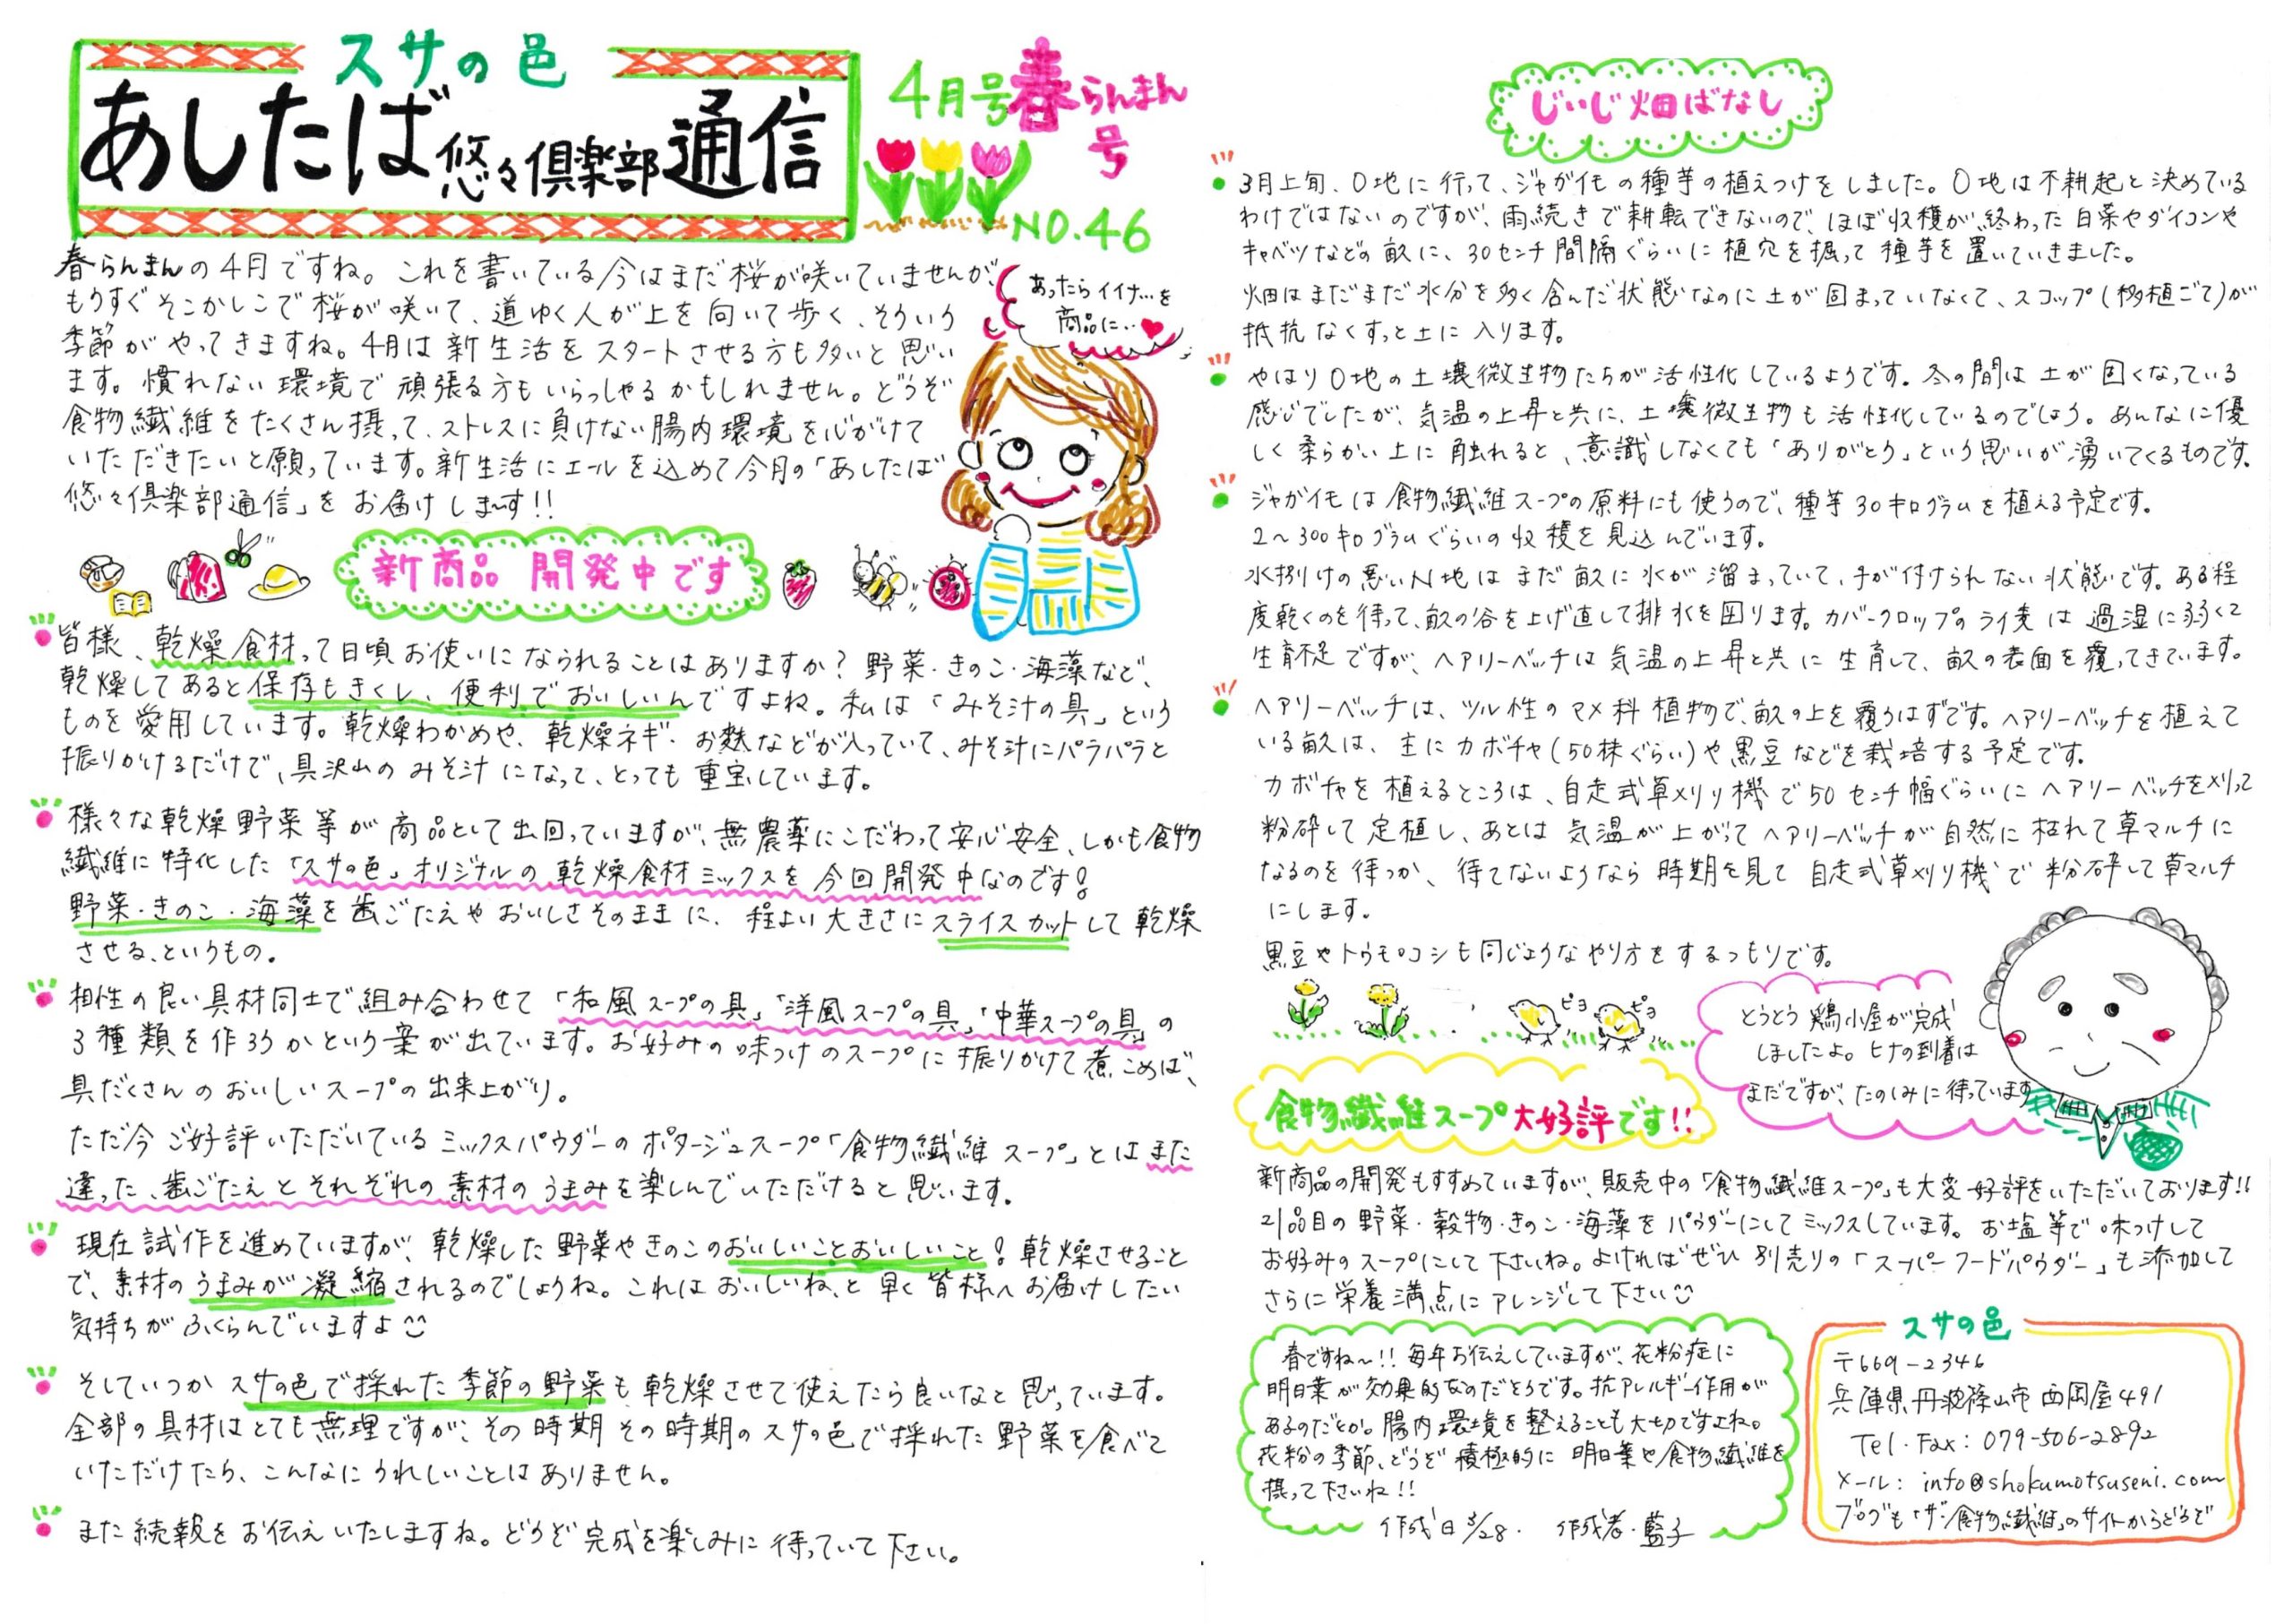 スサの邑
あしたば悠々倶楽部通信
4月号春らんまん号
NO.46
春らんまんの4月ですね。これを書いている今はまだ桜が咲いていませんが、
もうすぐそこかしこで桜が咲いて、道ゆく人が上を向いて歩く、そういう
季節がやってきますね。4月は新生活をスタートさせる方も多いと思い
ます。慣れない環境で頑張る方もいらっしゃるかもしれません。どうぞ
食物繊維をたくさん摂って、ストレスに負けない腸内環境を心がけて
いただきたいと願っています。新生活にエールを込めて今月の「あしたば
悠々倶楽部通信」をお届けしま~す!!
あったらイイナ…を
商品に..
新商品 開発中です
皆様、乾燥食材って日頃お使いになられることはありますか?野菜・きのこ・海藻など、
乾燥してあると保存もきくし、便利でおいしいんですよね。私は「みそ汁の具」という
ものを愛用しています。乾燥わかめや、乾燥ネギ・お麩などが入っていて、みそ汁にパラパラと
振りかけるだけで、具沢山のみそ汁になって、とっても重宝しています。
様々な乾燥野菜等が商品として出回っていますが、無農薬にこだわって安心安全、しかも食物
繊維に特化した「スサの邑」オリジナルの乾燥食材ミックスを今回開発中なのです!
野菜・きのこ・海藻を歯ごたえやおいしさそのままに、程よい大きさにスライスカットして乾燥
させる、というもの。
相性の良い具材同士で組み合わせて「和風スープの具」「洋風スープの具」「中華スープの具」の
3種類を作ろうかという案が出ています。お好みの味つけのスープに振りかけて煮こめば、
具だくさんのおいしいスープの出来上がり。
ただ今ご好評いただいているミックスパウダーのポタージュスープ「食物繊維スープ」とはまた
違った、歯ごたえとそれぞれの素材のうまみを楽しんでいただけると思います。
現在試作を進めていますが、乾燥した野菜やきのこのおいしいことおいしいこと!乾燥させること
で、素材のうまみが凝縮されるのでしょうね。これはおいしいね、と早く皆様へお届けしたい
気持ちがふくらんでいますよ
そしていつかスサの邑で採れた季節の野菜も乾燥させて使えたら良いなと思っています。
全部の具材はとても無理ですが、その時期その時期のスサの邑で採れた野菜を食べて
いただけたら、こんなにうれしいことはありません。
また続報をお伝えいたしますね。どうぞ完成を楽しみに待っていて下さい。
じいじ畑ばなし
3月上旬、O地に行って、ジャガイモの種芋の植えつけをしました。O地は不耕起と決めている
わけではないのですが、雨続きで耕転できないので、ほぼ収穫が終わった白菜やダイコンや
キャベツなどの畝に、30センチ間隔ぐらいに植穴を掘って種芋を置いていきました。
畑はまだまだ水分を多く含んだ状態なのに土が固まっていなくて、スコップ(移植ごて)が
抵抗なくすっと土に入ります。
やはりO地の土壌微生物たちが活性化しているようです。冬の間は土が固くなっている
感じでしたが、気温の上昇と共に、土壌微生物も活性化しているのでしょう。あんなに優
しく柔らかい土に触れると、意識しなくても「ありがとう」という思いが湧いてくるものです。
ジャガイモは食物繊維スープの原料にも使うので、種芋30キログラムを植える予定です。
2~300キログラムぐらいの収穫を見込んでいます。
水捌けの悪いN地はまだ畝に水が溜まっていて、手が付けられない状態です。ある程
度乾くのを待って、畝の谷を上げ直して排水を図ります。カバークロップのライ麦は過湿に弱くて
生育不足ですが、ヘアリーベッチは気温の上昇と共に生育して、畝の表面を覆ってきています。
ヘアリーベッチは、ツル性のマメ科植物で、畝の上を覆うはずです。ヘアリーベッチを植えて
いる畝は、主にカボチャ(50株ぐらい)や黒豆などを栽培する予定です。
カボチャを植えるところは、自走式草刈り機で50センチ幅ぐらいにヘアリーベッチを刈って
粉砕して定植し、あとは気温が上がってヘアリーベッチが自然に枯れて草マルチに
なるのを待つか、待てないようなら時期を見て自走式草刈り機で粉砕して草マルチ
にします。
黒豆やトウモロコシも同じようなやり方をするつもりです。
ピヨ ピヨ
とうとう鶏小屋が完成
しましたよ。ヒナの到着は
まだですが、たのしみに待っています
食物繊維スープ大好評です!!
新商品の開発もすすめていますが、販売中の「食物繊維スープ」も大変好評をいただいております!!
21品目の野菜・穀物・きのこ・海藻をパウダーにしてミックスしています。お塩等で味つけして
お好みのスープにして下さいね。よければぜひ別売りの「スーパーフードパウダー」も添加して
さらに栄養満点にアレンジして下さい
春ですね~!!毎年お伝えしていますが、花粉症に
明日葉が効果的なのだそうです。抗アレルギー作用が
あるのだとか。腸内環境を整えることも大切ですよね。
花粉の季節、どうぞ積極的に明日葉や食物繊維を
摂って下さいね!!
作成日3/28. 作成者・藍子
スサの邑
〒669-2346
兵庫県丹波篠山市西岡屋491
Tel・Fax:079-506-2892
メール:info@shokumotsuseni.com
ブログも「ザ・食物繊維」のサイトからどうぞ